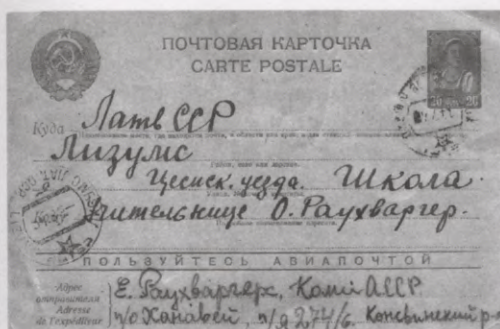 ПОЧТОВАЯ КАРТОЧКА
CARTE POSTALE
20 20
Куда ЛатвССР
Лизумс
Цесиск. уезда. Школа
учительнице О. Раухваргер.
ПОЛЬЗУЙТЕСЬ АВИАПОЧТОЙ
Адрес отправителя
Adresse de l'expéditeur
Е. Раухваргер, Коми АССР
п/о Ханавей, п/я 274/6. Кожвинский р-